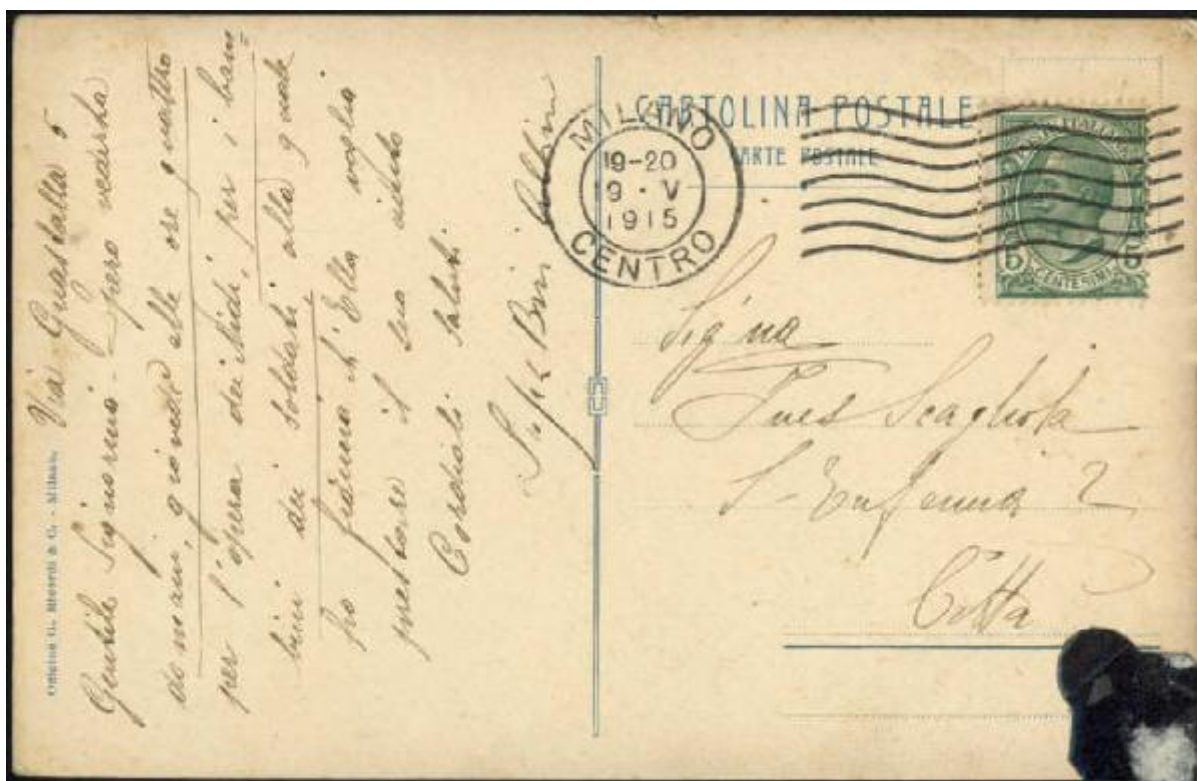 Via Guastalla 5
Gentile Signorina - spero vederla
domani, giovedì alle ore quattro
per l'opera dei Nidi, per i bam=
bini dei soldati alla quale
ho fiducia ch'Ella voglia
prestare il suo aiuto
Cordiali saluti
Bini
Officine G. & C. - Milano.
CARTOLINA POSTALE
CARTE POSTALE
MILANO
19-20
19 · V
1915
CENTRO
POSTE ITALIANE
5 CENTESIMI 5
Sig.na
Ines Scagliola
S. Eufemia 2
Città